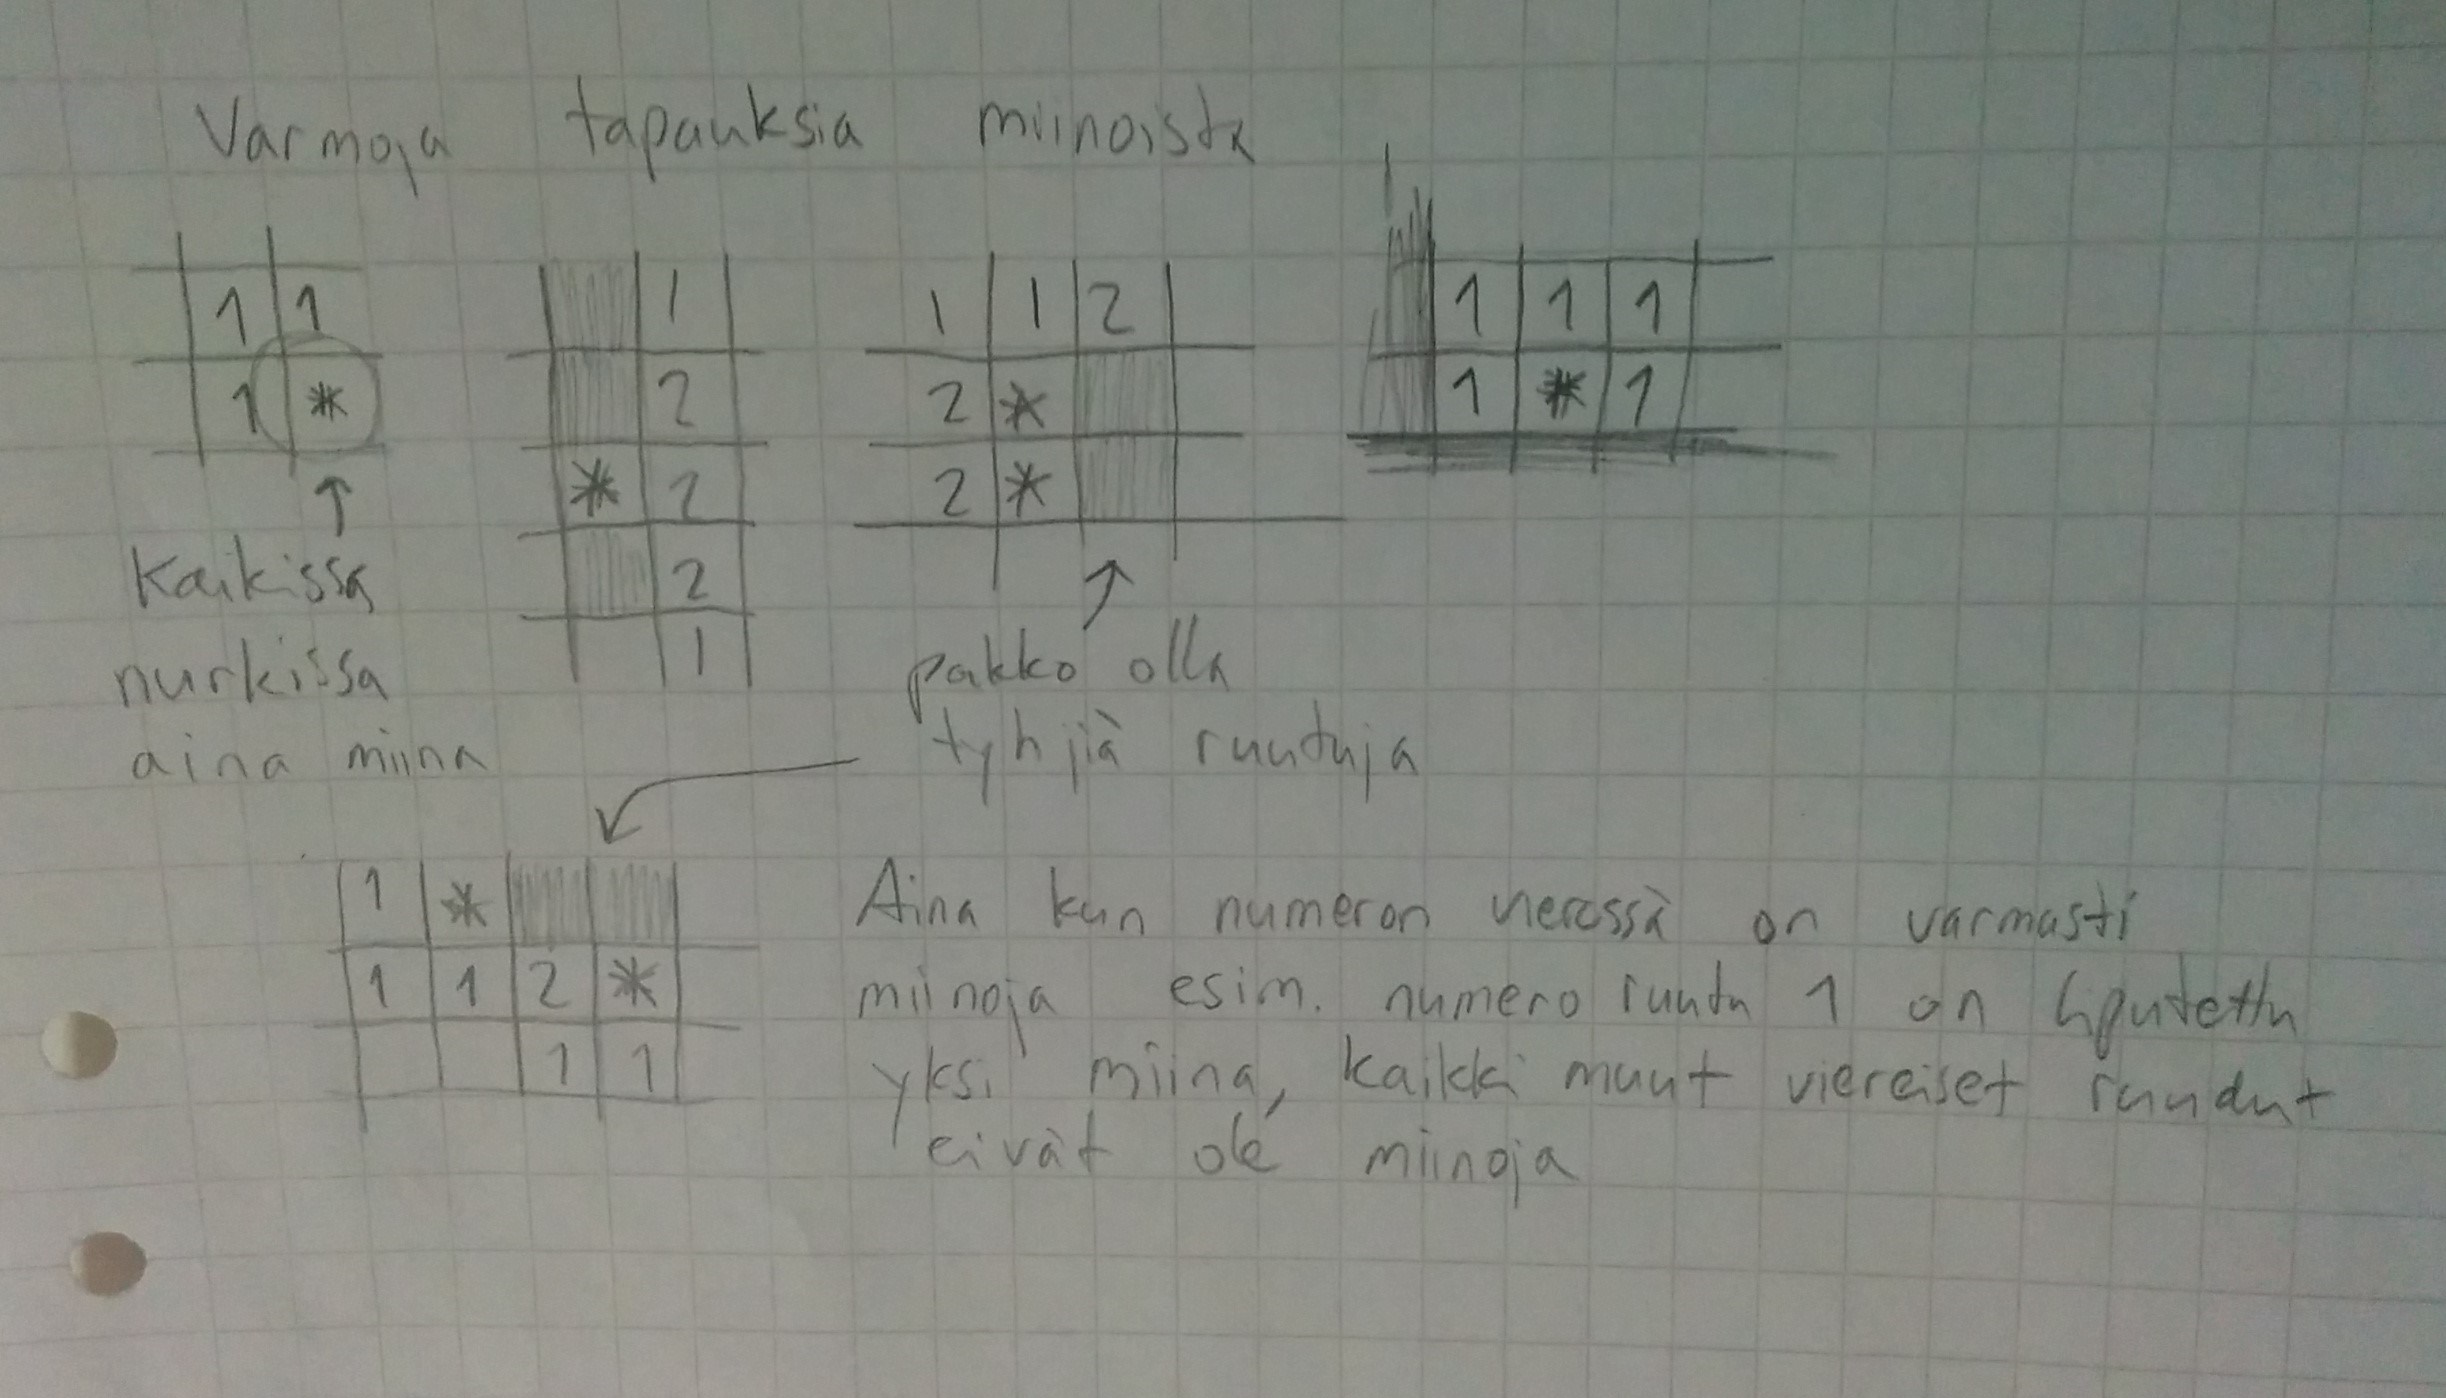 Varmoja tapauksia miinoista
1 1
1 *
1
2
* 2
2
1
1 1 2
2 *
2 *
1 1 1
1 * 1
Kaikissa
nurkissa
aina miina
pakko olla
tyhjiä ruutuja
1 *
1 1 2 *
1 1
Aina kun numeron vieressä on varmasti
miinoja esim. numero ruutu 1 on liputettu
yksi miina, kaikki muut viereiset ruudut
eivät ole miinoja